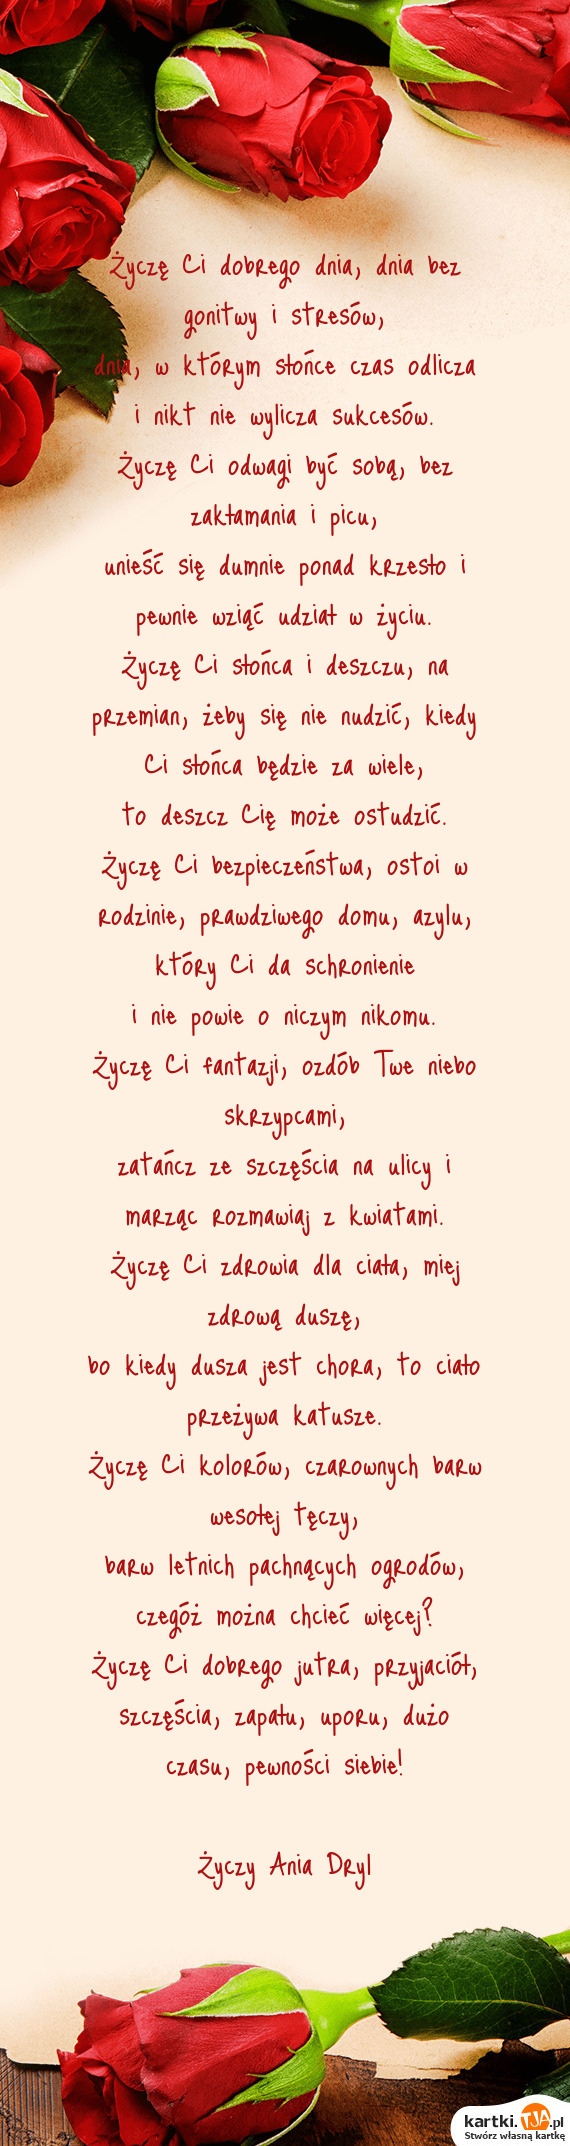 Życzę Ci dobrego dnia, dnia bez
gonitwy i stresów,
dnia, w którym słońce czas odlicza
i nikt nie wylicza sukcesów.
Życzę Ci odwagi być sobą, bez
zakłamania i picu,
unieść się dumnie ponad krzesło i
pewnie wziąć udział w życiu.
Życzę Ci słońca i deszczu, na
przemian, żeby się nie nudzić, kiedy
Ci słońca będzie za wiele,
to deszcz Cię może ostudzić.
Życzę Ci bezpieczeństwa, ostoi w
rodzinie, prawdziwego domu, azylu,
który Ci da schronienie
i nie powie o niczym nikomu.
Życzę Ci fantazji, ozdób Twe niebo
skrzypcami,
zatańcz ze szczęścia na ulicy i
marząc rozmawiaj z kwiatami.
Życzę Ci zdrowia dla ciała, miej
zdrową duszę,
bo kiedy dusza jest chora, to ciało
przeżywa katusze.
Życzę Ci kolorów, czarownych barw
wesołej tęczy,
barw letnich pachnących ogrodów,
czegóż można chcieć więcej?
Życzę Ci dobrego jutra, przyjaciół,
szczęścia, zapału, uporu, dużo
czasu, pewności siebie!
Życzy Ania Dryl
kartki.TJA.pl
Stwórz własną kartkę